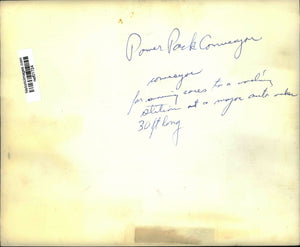 Power Pack Conveyor
conveyor
for moving cores to a
station at a major auto maker
30 ft long